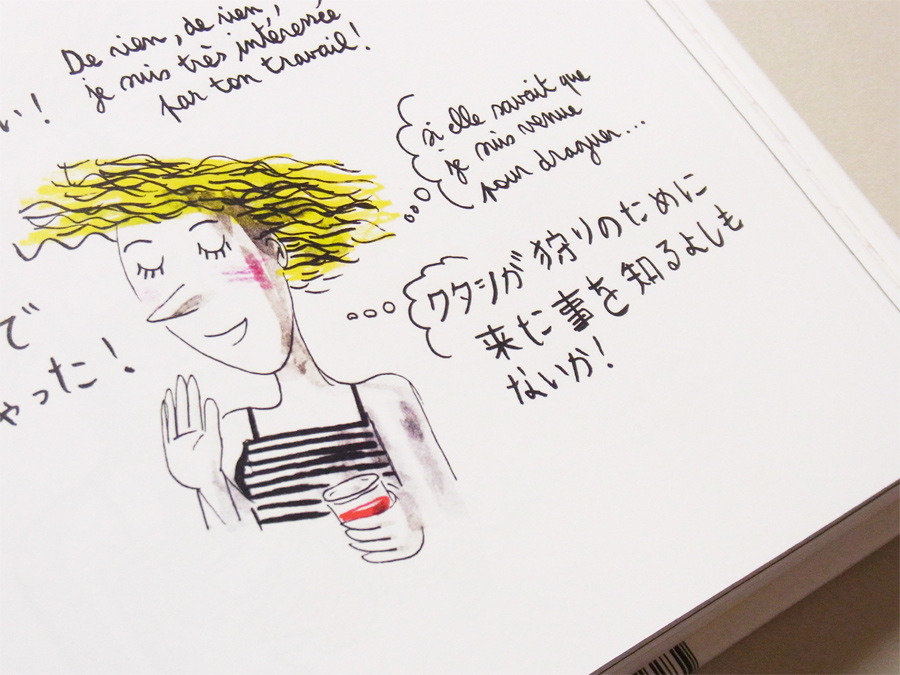 De rien, de rien,
je suis très intéressée
par ton travail!
い!
si elle savait que
je suis venue
pour draguer...
ワタシガ狩りのために
来た事を知るよしも
ないか!
で
ゃった!